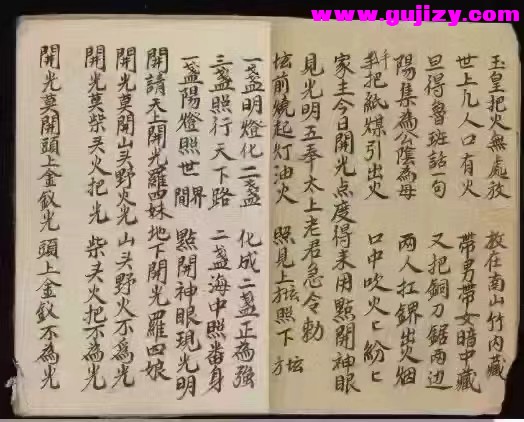 www.gujizy.com
玉皇把火無處放 教在南山竹內藏
世上凡人口有火 帶男帶女暗中藏
旦得魯班話一句 又把銅刀鋸兩边
陽集為公陰為母 兩人扛鎅出火烟
把紙煤引出火 口中吹火匕紛匕
家主今日開光点度得来用點開神眼
見光明五奉太上老君急令勅
坛前燒起灯油火 照見上坛照下坛
一盞明燈化二盞 化成二盞正為強
三盞照行天下路 二盞海中照番身
一盞陽燈照世界間 點開神眼現光明
開請天上開光羅四妹 地下開光羅四娘
開光莫開山头野火光 山头野火不為光
開光莫柴头火把光 柴头火把不為光
開光莫開頭上金釵光 頭上金釵不為光